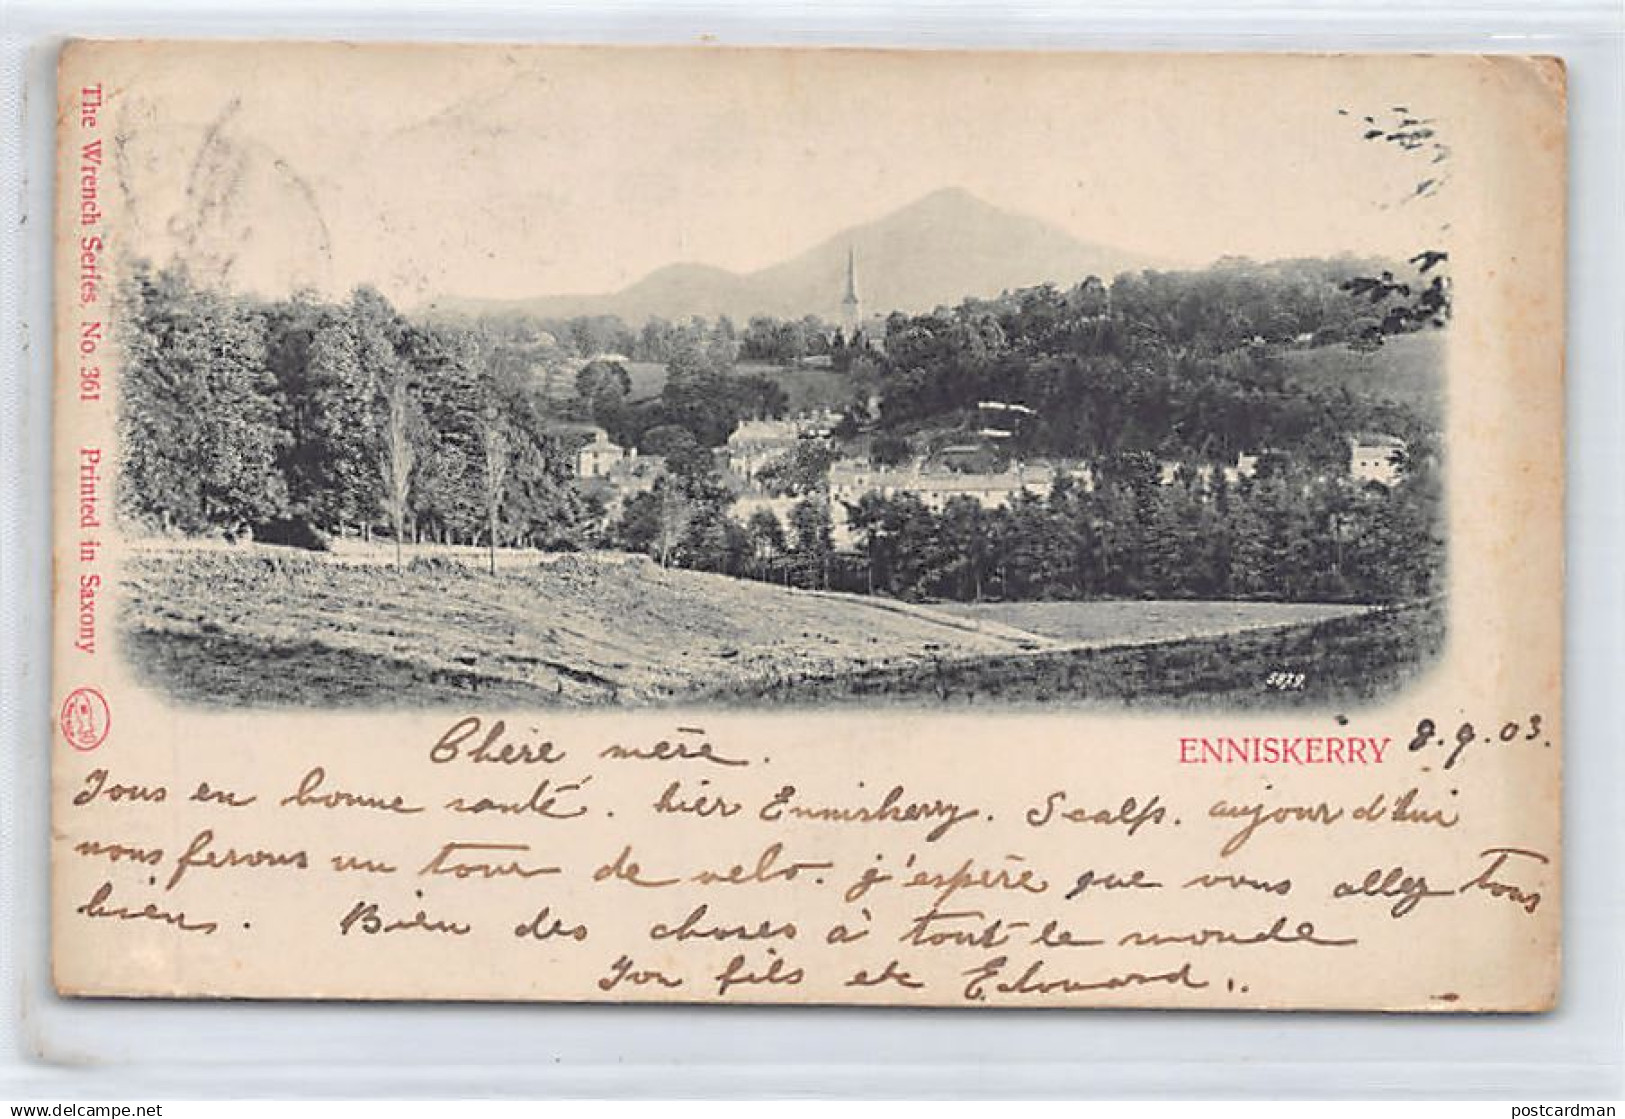 The Wrench Series, No. 361 Printed in Saxony
5879.
ENNISKERRY
8.9.03.
Chère mère.
Tous en bonne santé. hier Enniskerry. Scalp. aujourd'hui
nous ferons un tour de velo. j'espère que vous allez tous
bien. Bien des choses à tout le monde
Ton fils etc Edouard.
www.delcampe.net
postcardman